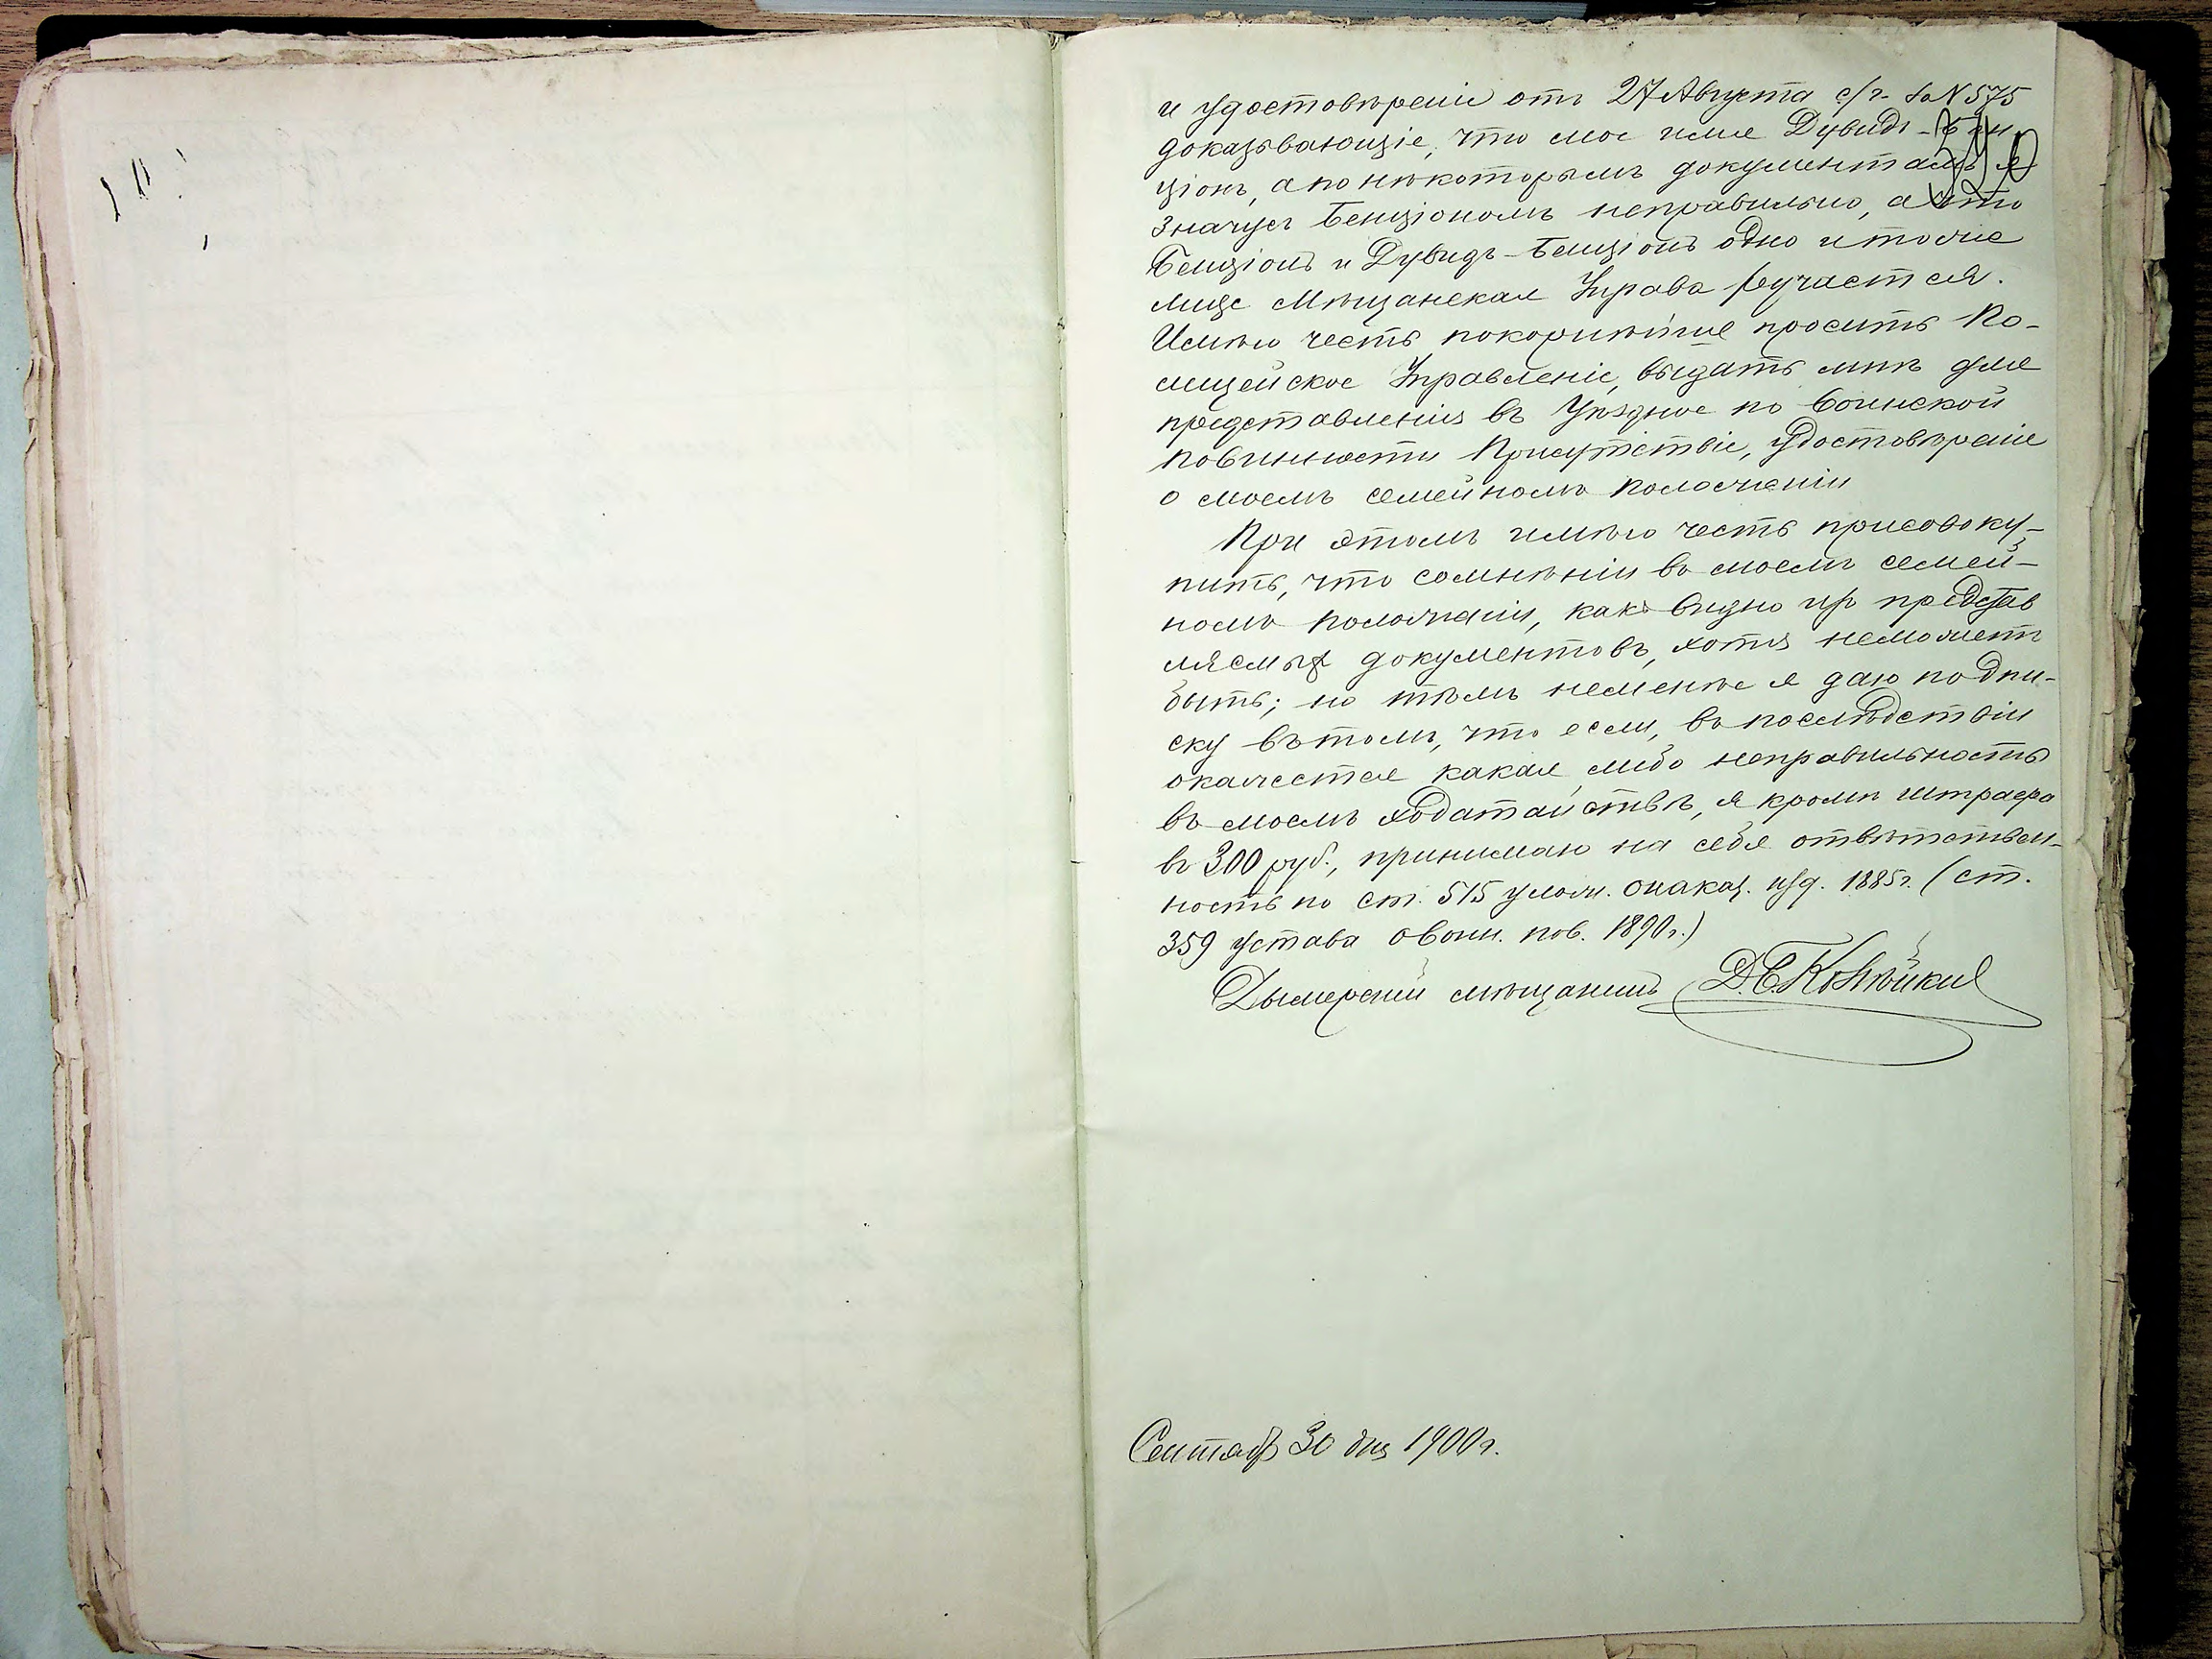 и удостовѣреніе отъ 27 Августа с/г. за N 575
доказывающіе, что мое имя Дувидъ-Бен
ціонъ, а по нѣкоторымъ документамъ я
значусь Бенціономъ неправильно, а что
Бенціонъ и Дувидъ-Бенціонъ одно и тоже
лице Мѣщанская Управа ручается.
Имѣю честь покорнѣйше просить По-
лицейское Управленіе, выдать мнѣ для
представленія въ Уѣздное по Воинской
повинности Присутствіе, удостовѣреніе
о моемъ семейномъ положеніи
При этомъ имѣю честь присовоку-
пить, что сомнѣнія въ моемъ семей-
номъ положеніи, какъ видно изъ представ
ляемыхъ документовъ, хотя неможетъ
быть; но тѣмъ неменѣе я даю подпи-
ску въ томъ, что если, въ послѣдствіи
окажется какая либо неправильность
въ моемъ ходатайствѣ, я кромѣ штрафа
въ 300 руб., принимаю на себя отвѣтствен-
ность по ст. 515 улож. о наказ. изд. 1885 г. (ст.
359 устава о воин. пов. 1890 г.)
Дымерскій мѣщанинъ Д.Б.
Сентября 30 дня 1900 г.